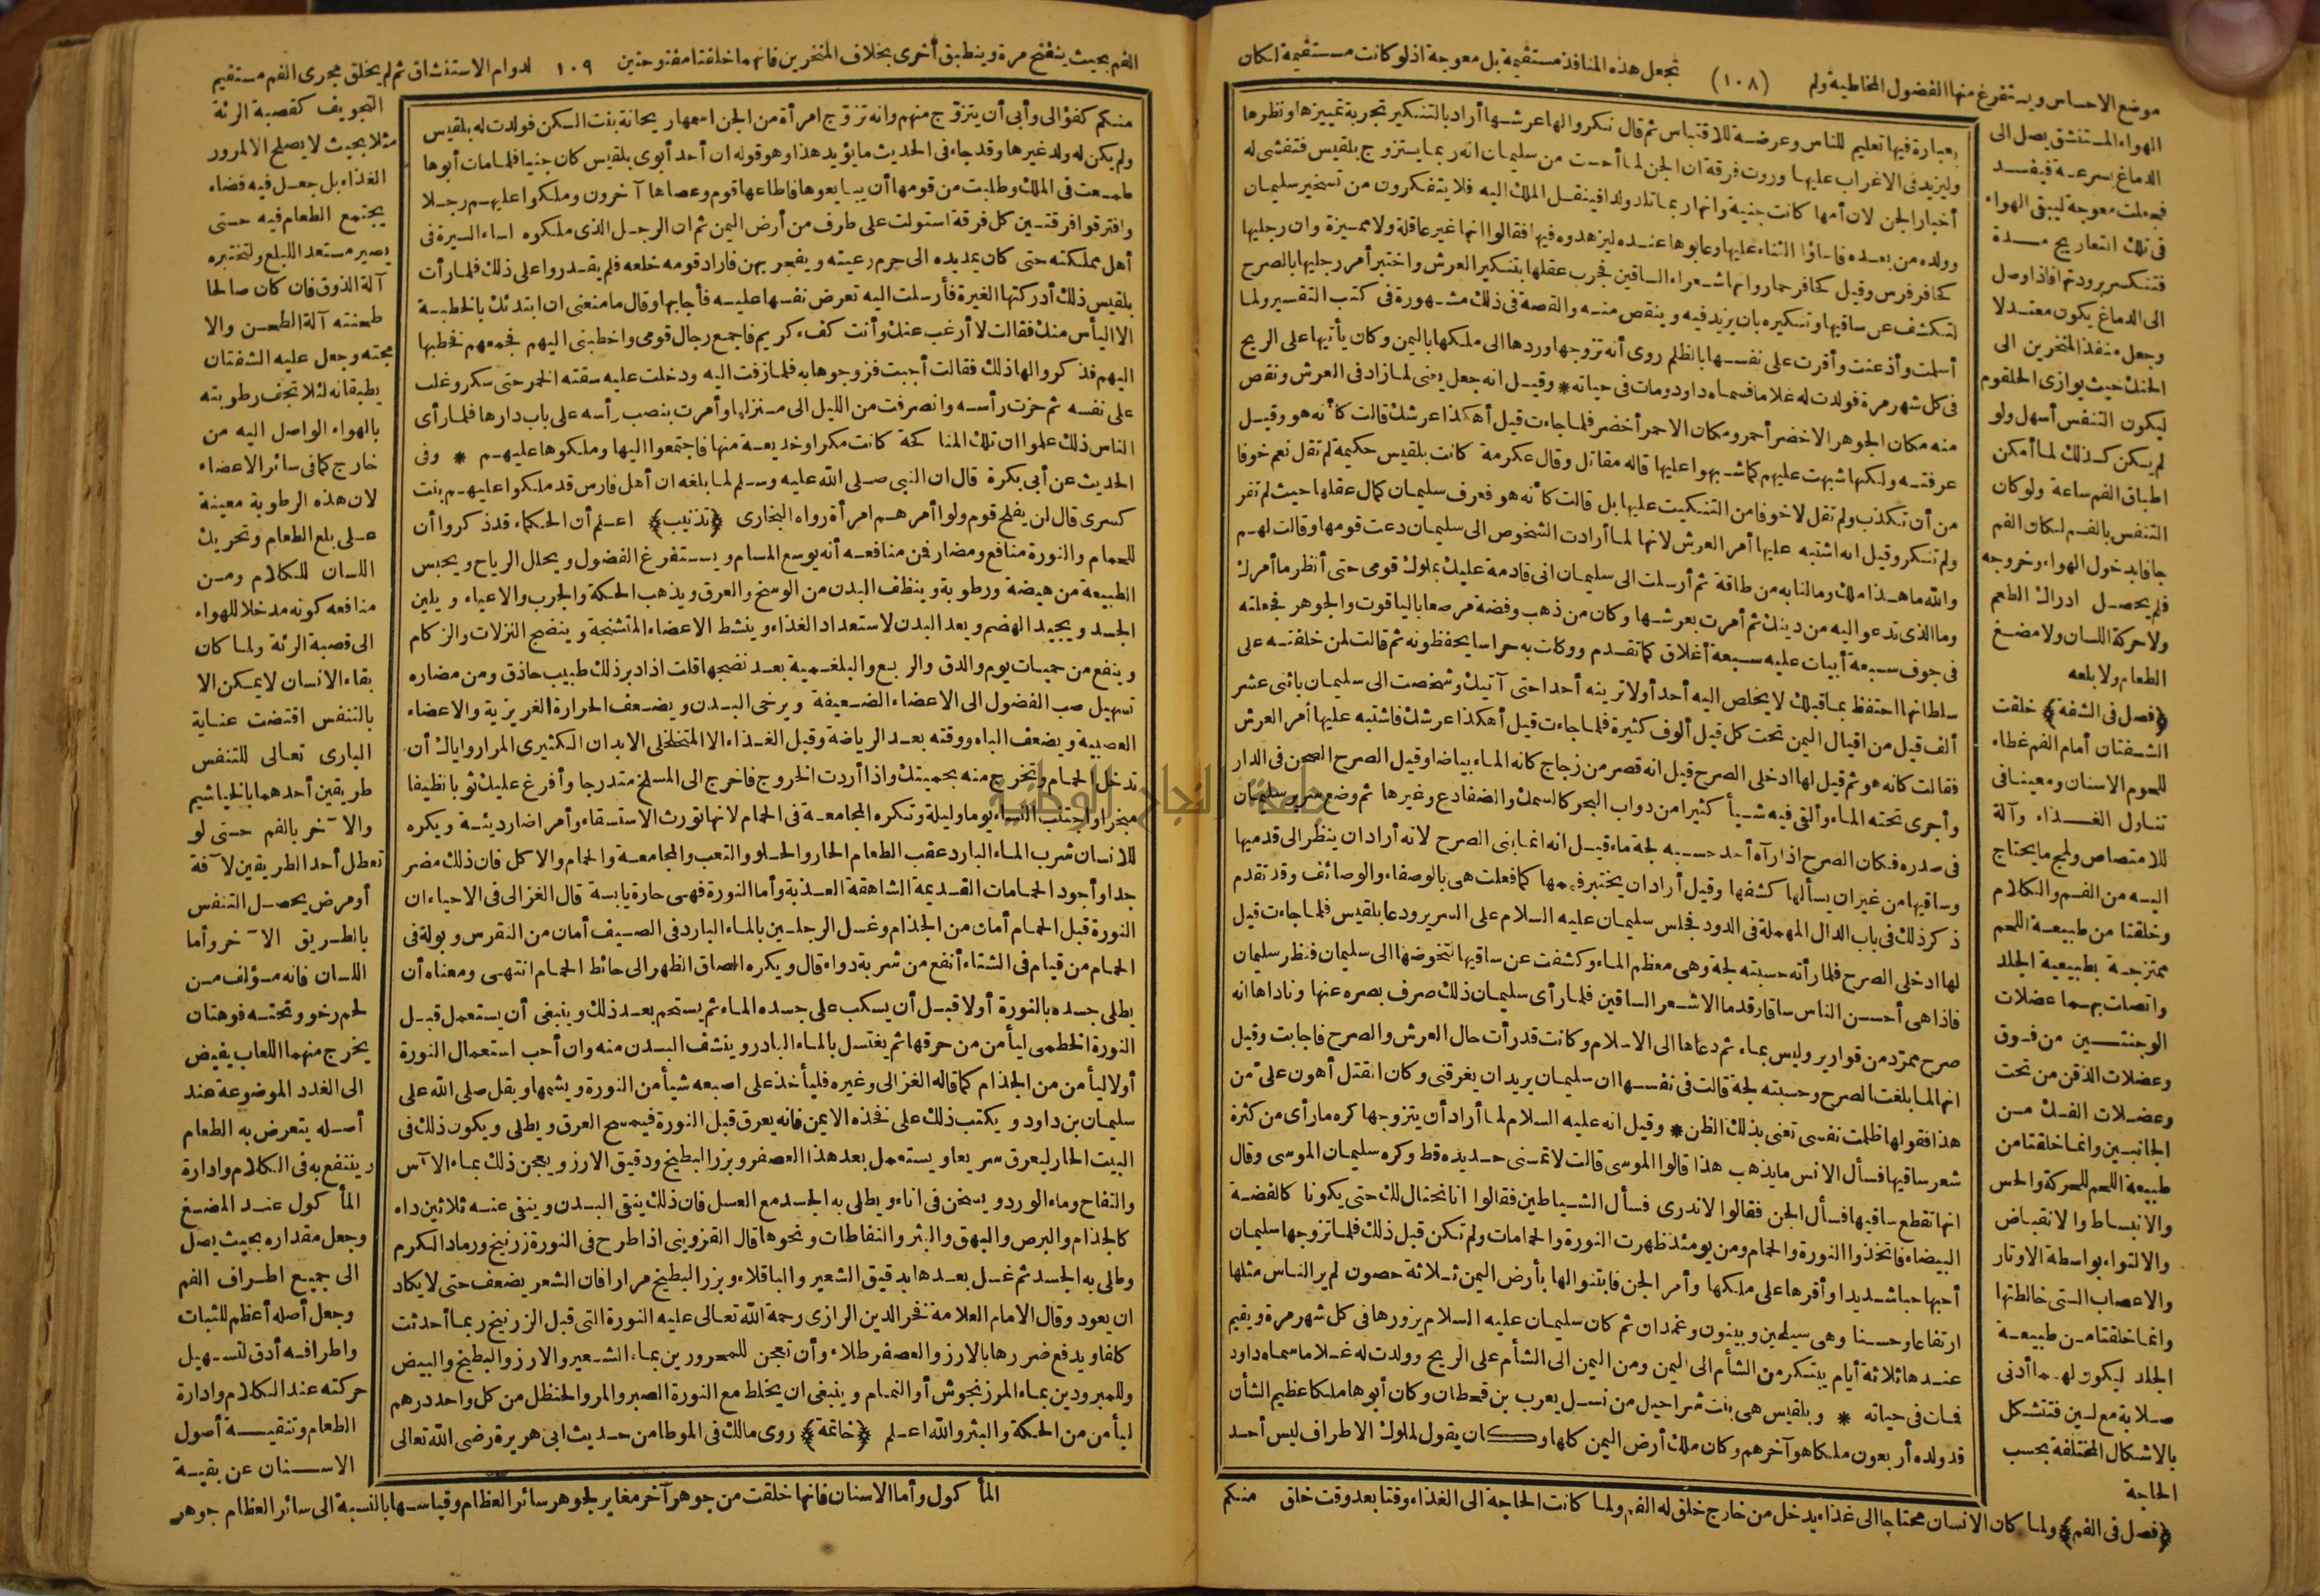 موضع الاحساس ويستفرغ منها الفضول المخاطية ولم (١٠٨) تجعل هذه المنافذ مستقيمة بل معوجة اذ لو كانت مستقيمة لكان
الهواء المستنشق يصل الى
الدماغ بسرعة فيفسد
فجعلت معوجة ليبقى الهواء
فى تلك التعاريج مدة
فتنكسر برودته فاذا وصل
الى الدماغ يكون معتدلا
وجعل منفذ المنخرين الى
الحنك حيث يوازى الحلقوم
ليكون التنفس أسهل ولو
لم يكن كذلك لما أمكن
اطباق الفم ساعة ولو كان
التنفس بالفم لكان الفم
جافا بدخول الهواء وخروجه
فلم يحصل ادراك الطعم
ولا حركة اللسان ولا مضغ
الطعام ولا بلعه
﴿فصل فى الشفة﴾ خلقت
الشفتان أمام الفم غطاء
للحوم الاسنان ومعينا فى
تناول الغذاء وآلة
للامتصاص ولمج ما يحتاج
اليه من الفم والكلام
وخلقتا من طبيعة اللحم
ممتزجة بطبيعة الجلد
واتصلت بهما عضلات
الوجنتين من فوق
وعضلات الذقن من تحت
وعضلات الفك من
الجانبين وانما خلقتا من
طبيعة اللحم للحركة والحس
والانبساط والانقباض
والالتواء بواسطة الاوتار
والاعصاب التى خالطتها
وانما خلقتا من طبيعة
الجلد ليكون لهما أدنى
صلابة مع لين فتتشكل
بالاشكال المختلفة بحسب
الحاجة
بعبارة فيها تعليم للناس وعرضة للاقتباس ثم قال نكروا لها عرشها أراد بالتنكير تجربة تمييزها ونظرها
وليزيد فى الاغراب عليها وروت فرقة ان الجن لما أحست من سليمان انه ربما يتزوج بلقيس فتفشى له
أخبار الجن لان أمها كانت جنية وانها ربما تلد ولدا فينقل الملك اليه فلا يتفكرون من تسخير سليمان
وولده من بعده فاساؤا الثناء عليها وعابوها عنده ليزهدوه فيها فقالوا انها غير عاقلة ولا مميزة وان رجليها
كحافر فرس وقيل كحافر حمار وانها شعراء الساقين فجرب عقلها بتنكير العرش واختبر أمر رجليها بالصرح
لتكشف عن ساقيها وتنكيره بان يزيد فيه وينقص منه والقصة فى ذلك مشهورة فى كتب التفسير ولما
أسلمت وأذعنت وأقرت على نفسها بالظلم روى أنه تزوجها وردها الى ملكها باليمن وكان يأتيها على الريح
فى كل شهر مرة فولدت له غلاما فسماه داود ومات فى حياته * وقيل انه جعل يعنى لما زاد فى العرش ونقص
منه مكان الجوهر الاخضر أحمر ومكان الاحمر أخضر فلما جاءت قيل أهكذا عرشك قالت كأنه هو وقيل
عرفته ولكنها شبهت عليهم كما شبهوا عليها قاله مقاتل وقال عكرمة كانت بلقيس حكيمة لم تقل نعم خوفا
من أن تكذب ولم تقل لا خوفا من التنكيت عليها بل قالت كأنه هو فعرف سليمان كمال عقلها حيث لم تقر
ولم تنكر وقيل انه اشتبه عليها أمر العرش لانها لما أرادت الشخوص الى سليمان دعت قومها وقالت لهم
والله ما هذا ملك وما لنا به من طاقة ثم أرسلت الى سليمان انى قادمة عليك بملوك قومى حتى أنظر ما أمرك
وما الذى تدعو اليه من دينك ثم أمرت بعرشها وكان من ذهب وفضة مرصعا بالياقوت والجوهر فجعلته
فى جوف سبعة أبيات عليه سبعة أغلاق كما تقدم ووكلت به حراسا يحفظونه ثم قالت لمن خلفته على
سلطانها احتفظ بما قبلك لا يخلص اليه أحد أو لا ترينه أحدا حتى آتيك وشخصت الى سليمان باثنى عشر
ألف قيل من اقيال اليمن تحت كل قيل ألوف كثيرة فلما جاءت قيل أهكذا عرشك فاشتبه عليها أمر العرش
فقالت كانه هو ثم قيل لها ادخلى الصرح قيل انه قصر من زجاج كانه الماء بياضا وقيل الصرح الصحن فى الدار
وأجرى تحته الماء وألقى فيه شيأ كثيرا من دواب البحر كالسمك والضفادع وغيرها ثم وضع سرير سليمان
فى صدره فكان الصرح اذا رآه أحد حسبه لجة ماء قيل انه انما بنى الصرح لانه أراد ان ينظر الى قدميها
وساقيها من غير ان يسألها كشفها وقيل أراد ان يختبر فهمها كما فعلت هى بالوصفاء والوصائف وقد تقدم
ذكر ذلك فى باب الدال المهملة فى الدود فجلس سليمان عليه السلام على السرير ودعا بلقيس فلما جاءت قيل
لها ادخلى الصرح فلما رأته حسبته لجة وهى معظم الماء وكشفت عن ساقيها لتخوضها الى سليمان فنظر سليمان
فاذا هى أحسن الناس ساقا وقدما الا شعر الساقين فلما رأى سليمان ذلك صرف بصره عنها وناداها انه
صرح ممرد من قوارير وليس بماء ثم دعاها الى الاسلام وكانت قد رأت حال العرش والصرح فاجابت وقيل
انها لما بلغت الصرح وحسبته لجة قالت فى نفسها ان سليمان يريد ان يغرقنى وكان القتل أهون علىّ من
هذا فقولها ظلمت نفسى تعنى بذلك الظن * وقيل انه عليه السلام لما أراد أن يتزوجها كره ما رأى من كثرة
شعر ساقيها فسأل الانس ما يذهب هذا قالوا الموسى قالت لا تمسنى حديدة قط وكره سليمان الموسى وقال
انها تقطع ساقيها فسأل الجن فقالوا لا ندرى فسأل الشياطين فقالوا انا نحتال لك حتى يكونا كالفضة
البيضاء فاتخذوا النورة والحمام ومن يومئذ ظهرت النورة والحمامات ولم تكن قبل ذلك فلما تزوجها سليمان
أحبها حبا شديدا وأقرها على ملكها وأمر الجن فابتنوا لها بأرض اليمن ثلاثة حصون لم ير الناس مثلها
ارتفاعا وحسنا وهى سيلحين وبينون وغمدان ثم كان سليمان عليه السلام يزورها فى كل شهر مرة ويقيم
عندها ثلاثة أيام يبتكر من الشأم الى اليمن ومن اليمن الى الشأم على الريح وولدت له غلاما سماه داود
فمات فى حياته * وبلقيس هى بنت شراحيل من نسل يعرب بن قحطان وكان أبوها ملكا عظيم الشأن
قد ولد له أربعون ملكا هو آخرهم وكان ملك أرض اليمن كلها وكان يقول لملوك الاطراف ليس أحد
﴿فصل فى الفم﴾ ولما كان الانسان محتاجا الى غذاء يدخل من خارج خلق له الفم ولما كانت الحاجة الى الغذاء وقتا بعد وقت خلق منكم
الفم بحيث ينفتح مرة وينطبق أخرى بخلاف المنخرين فانهما خلقتا مفتوحتين ١٠٩ لدوام الاستنشاق ثم لم يخلق مجرى الفم مستقيم
منكم كفؤا لى وأبى أن يتزوّج منهم وانه تزوّج امرأة من الجن اسمها ريحانة بنت السكن فولدت له بلقيس
ولم يكن له ولد غيرها وقد جاء فى الحديث ما يؤيد هذا وهو قوله ان أحد أبوى بلقيس كان جنيا فلما مات أبوها
طمعت فى الملك وطلبت من قومها أن يبايعوها فاطاعها قوم وعصاها آخرون وملكوا عليهم رجلا
وافترقوا فرقتين كل فرقة استولت على طرف من أرض اليمن ثم ان الرجل الذى ملكوه اساء السيرة فى
أهل مملكته حتى كان يمد يده الى حرم رعيته ويفجر بهن فاراد قومه خلعه فلم يقدروا على ذلك فلما رأت
بلقيس ذلك أدركتها الغيرة فأرسلت اليه تعرض نفسها عليه فأجابها وقال ما منعنى ان ابتدئك بالخطبة
الا اليأس منك فقالت لا أرغب عنك وأنت كفء كريم فاجمع رجال قومى واخطبنى اليهم فجمعهم فخطبها
اليهم فذكروا لها ذلك فقالت أجبت فزوجوها به فلما زفت اليه ودخلت عليه سقته الخمر حتى سكر وغلب
على نفسه ثم حزت رأسه وانصرفت من الليل الى منزلها وأمرت بنصب رأسه على باب دارها فلما رأى
الناس ذلك علموا ان تلك المناكحة كانت مكرا وخديعة منها فاجتمعوا اليها وملكوها عليهم * وفى
الحديث عن أبى بكرة قال ان النبى صلى الله عليه وسلم لما بلغه ان أهل فارس قد ملكوا عليهم بنت
كسرى قال لن يفلح قوم ولوا أمرهم امرأة رواه البخارى ﴿تذنيب﴾ اعلم أن الحكماء قد ذكروا أن
للحمام والنورة منافع ومضار فمن منافعه أنه يوسع المسام ويستفرغ الفضول ويحلل الرياح ويحبس
الطبيعة من هيضة ورطوبة وينظف البدن من الوسخ والعرق ويذهب الحكة والجرب والاعياء ويلين
الجسد ويجيد الهضم ويعد البدن لاستعداد الغذاء وينشط الاعضاء المتشنجة وينضج النزلات والزكام
وينفع من حميات يوم والدق والربع والبلغمية بعد نضجها قلت اذا دبر ذلك طبيب حاذق ومن مضاره
تسهيل صب الفضول الى الاعضاء الضعيفة ويرخى البدن ويضعف الحرارة الغريزية والاعضاء
العصبية ويضعف الباه ووقته بعد الرياضة وقبل الغذاء الا المتخلخلى الابدان الكثيرى المرار واياك أن
تدخل الحمام وتخرج منه بحميتك واذا أردت الخروج فاخرج الى المسلخ متدرجا وأفرغ عليك ثوبا نظيفا
مبخرا واجتنب النساء يوما وليلة وتكره المجامعة فى الحمام لانها تورث الاستسقاء وأمراضا رديئة ويكره
للانسان شرب الماء البارد عقب الطعام الحار والحلو والتعب والمجامعة والحمام والاكل فان ذلك مضر
جدا وأجود الحمامات القديمة الشاهقة العذبة وأما النورة فهى حارة يابسة قال الغزالى فى الاحياء ان
النورة قبل الحمام أمان من الجذام وغسل الرجلين بالماء البارد فى الصيف أمان من النقرس وبولة فى
الحمام من قيام فى الشتاء أنفع من شربة دواء قال ويكره الصاق الظهر الى حائط الحمام انتهى ومعناه أن
يطلى جسده بالنورة أولا قبل أن يسكب على جسده الماء ثم يستحم بعد ذلك وينبغى أن يستعمل قبل
النورة الخطمى ليأمن من حرقها ثم يغتسل بالماء البارد وينشف البدن منه وان أحب استعمال النورة
أولا ليأمن من الجذام كما قاله الغزالى وغيره فليأخذ على اصبعه شيأ من النورة ويشمها ويقل صلى الله على
سليمان بن داود ويكتب ذلك على فخذه الايمن فانه يعرق قبل النورة فيمسح العرق ويطلى ويكون ذلك فى
البيت الحار ليعرق سريعا ويستعمل بعد هذا العصفر وبزر البطيخ ودقيق الارز ويعجن ذلك بماء الآس
والتفاح وماء الورد ويسخن فى اناء ويطلى به الجسد مع العسل فان ذلك ينقى البدن وينفى عنه ثلاثين داء
كالجذام والبرص والبهق والبثر والنفاطات ونحوها قال القزوينى اذا طرح فى النورة زرنيخ ورماد الكرم
وطلى به الجسد ثم غسل بعدها بدقيق الشعير والباقلاء وبزر البطيخ مرارا فان الشعر يضعف حتى لا يكاد
ان يعود وقال الامام العلامة فخر الدين الرازى رحمة الله تعالى عليه النورة التى قبل الزرنيخ ربما أحدثت
كلفا ويدفع ضررها بالارز والعصفر طلاء وأن تعجن للمحرورين بماء الشعير والارز والبطيخ والبيض
وللمبرودين بماء المرزنجوش أو النمام وينبغى ان يخلط مع النورة الصبر والمر والحنظل من كل واحد درهم
ليأمن من الحكة والبثر والله اعلم ﴿خاتمة﴾ روى مالك فى الموطا من حديث ابى هريرة رضى الله تعالى
التجويف كقصبة الرئة
مثلا بحيث لا يصلح الا لمرور
الغذاء بل جعل فيه فضاء
يجتمع الطعام فيه حتى
يصير مستعدا للبلع ولتختبره
آلة الذوق فان كان صالحا
طحنته آلة الطحن والا
مجته وجعل عليه الشفتان
يطبقانه لئلا تجف رطوبته
بالهواء الواصل اليه من
خارج كما فى سائر الاعضاء
لان هذه الرطوبة معينة
على بلع الطعام وتحريك
اللسان للكلام ومن
منافعه كونه مدخلا للهواء
الى قصبة الرئة ولما كان
بقاء الانسان لا يمكن الا
بالتنفس اقتضت عناية
البارى تعالى للتنفس
طريقين أحدهما بالخياشيم
والآخر بالفم حتى لو
تعطل أحد الطريقين لآفة
أو مرض يحصل التنفس
بالطريق الآخر وأما
اللسان فانه مؤلف من
لحم رخو وتحته فوهتان
يخرج منهما اللعاب يفيض
الى الغدد الموضوعة عند
أصله يتعرض به الطعام
وينتفع به فى الكلام وادارة
المأكول عند المضغ
وجعل مقداره بحيث يصل
الى جميع اطراف الفم
وجعل أصله أعظم للثبات
واطرافه أدق لتسهيل
حركته عند الكلام وادارة
الطعام وتنقية أصول
الاسنان عن بقية
المأكول وأما الاسنان فانها خلقت من جوهر آخر مغاير لجوهر سائر العظام وقياسها بالنسبة الى سائر العظام جوهر
جامعة النجاح الوطنية